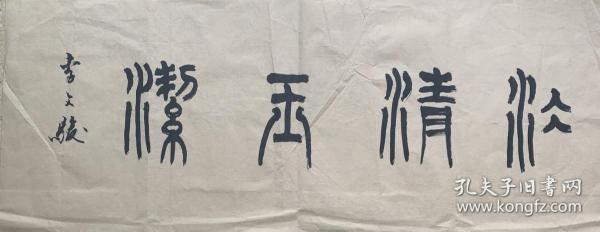 冰清玉潔
李文駿
孔夫子旧书网
www.kongfz.com